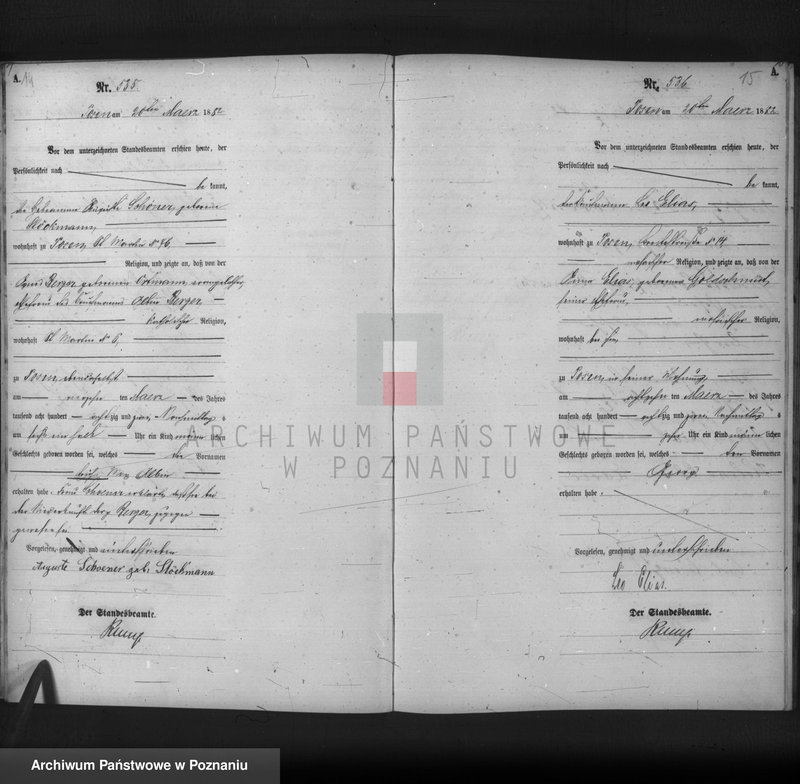 A.
14
Nr. 535.
Posen am 20ten Maerz 1882
Vor dem unterzeichneten Standesbeamten erschien heute, der
Persönlichkeit nach
be kannt,
die Hebeamme Auguste Schoner, geborene
Stöckmann,
wohnhaft zu Posen, St Martin N
Religion, und zeigte an, daß von der
Berger geborenen evangelischer,
Ehefrau des Kaufmanns Albin Berger
katholischer Religion,
wohnhaft St Martin N 6,
zu Posen, ebendaselbst
am ten Maerz des Jahres
tausend acht hundert achtzig und zwei Nachmittag s
um halb Uhr ein Kind männ lichen
Geschlechts geboren worden sei, welches die Vornamen
Max Albin
erhalten habe. Schoener erklärte, daß sie bei
der Niederkunft der p. Berger zugegen
gewesen sei
Vorgelesen, genehmigt und unterschrieben
Auguste Schoener geb. Stöckmann
Der Standesbeamte.
A.
15
Nr. 536
Posen am 20ten Maerz 1882
Vor dem unterzeichneten Standesbeamten erschien heute, der
Persönlichkeit nach
be kannt,
der Kaufmann Leo Elias,
wohnhaft zu Posen, N 14
mosaischer Religion, und zeigte an, daß von der
Elias, geborenen Goldschmidt,
seiner Ehefrau,
mosaischer Religion,
wohnhaft bei ihm,
zu Posen, in seiner Wohnung,
am ten Maerz des Jahres
tausend acht hundert achtzig und zwei Nachmittag s
um Uhr ein Kind männ lichen
Geschlechts geboren worden sei, welches den Vornamen
Georg
erhalten habe
Vorgelesen, genehmigt und unterschrieben
Leo Elias.
Der Standesbeamte.
ARCHIWUM PAŃSTWOWE
W POZNANIU
Archiwum Państwowe w Poznaniu